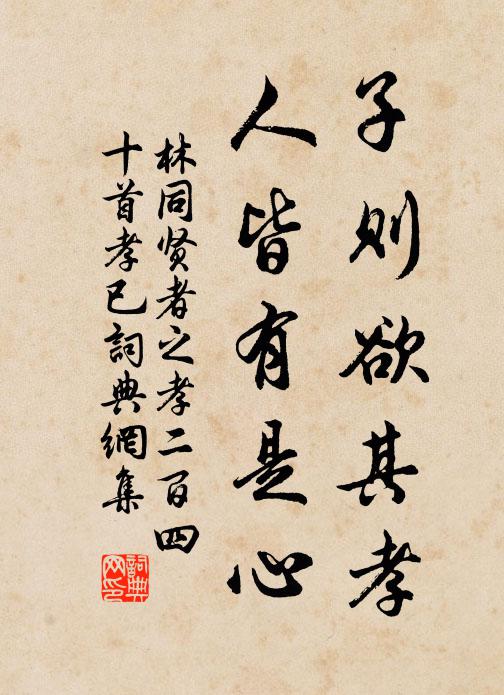 子则欲其孝
人皆有是心
林同贤者之孝二百四
十首孝己詞典網集
詞典
网印